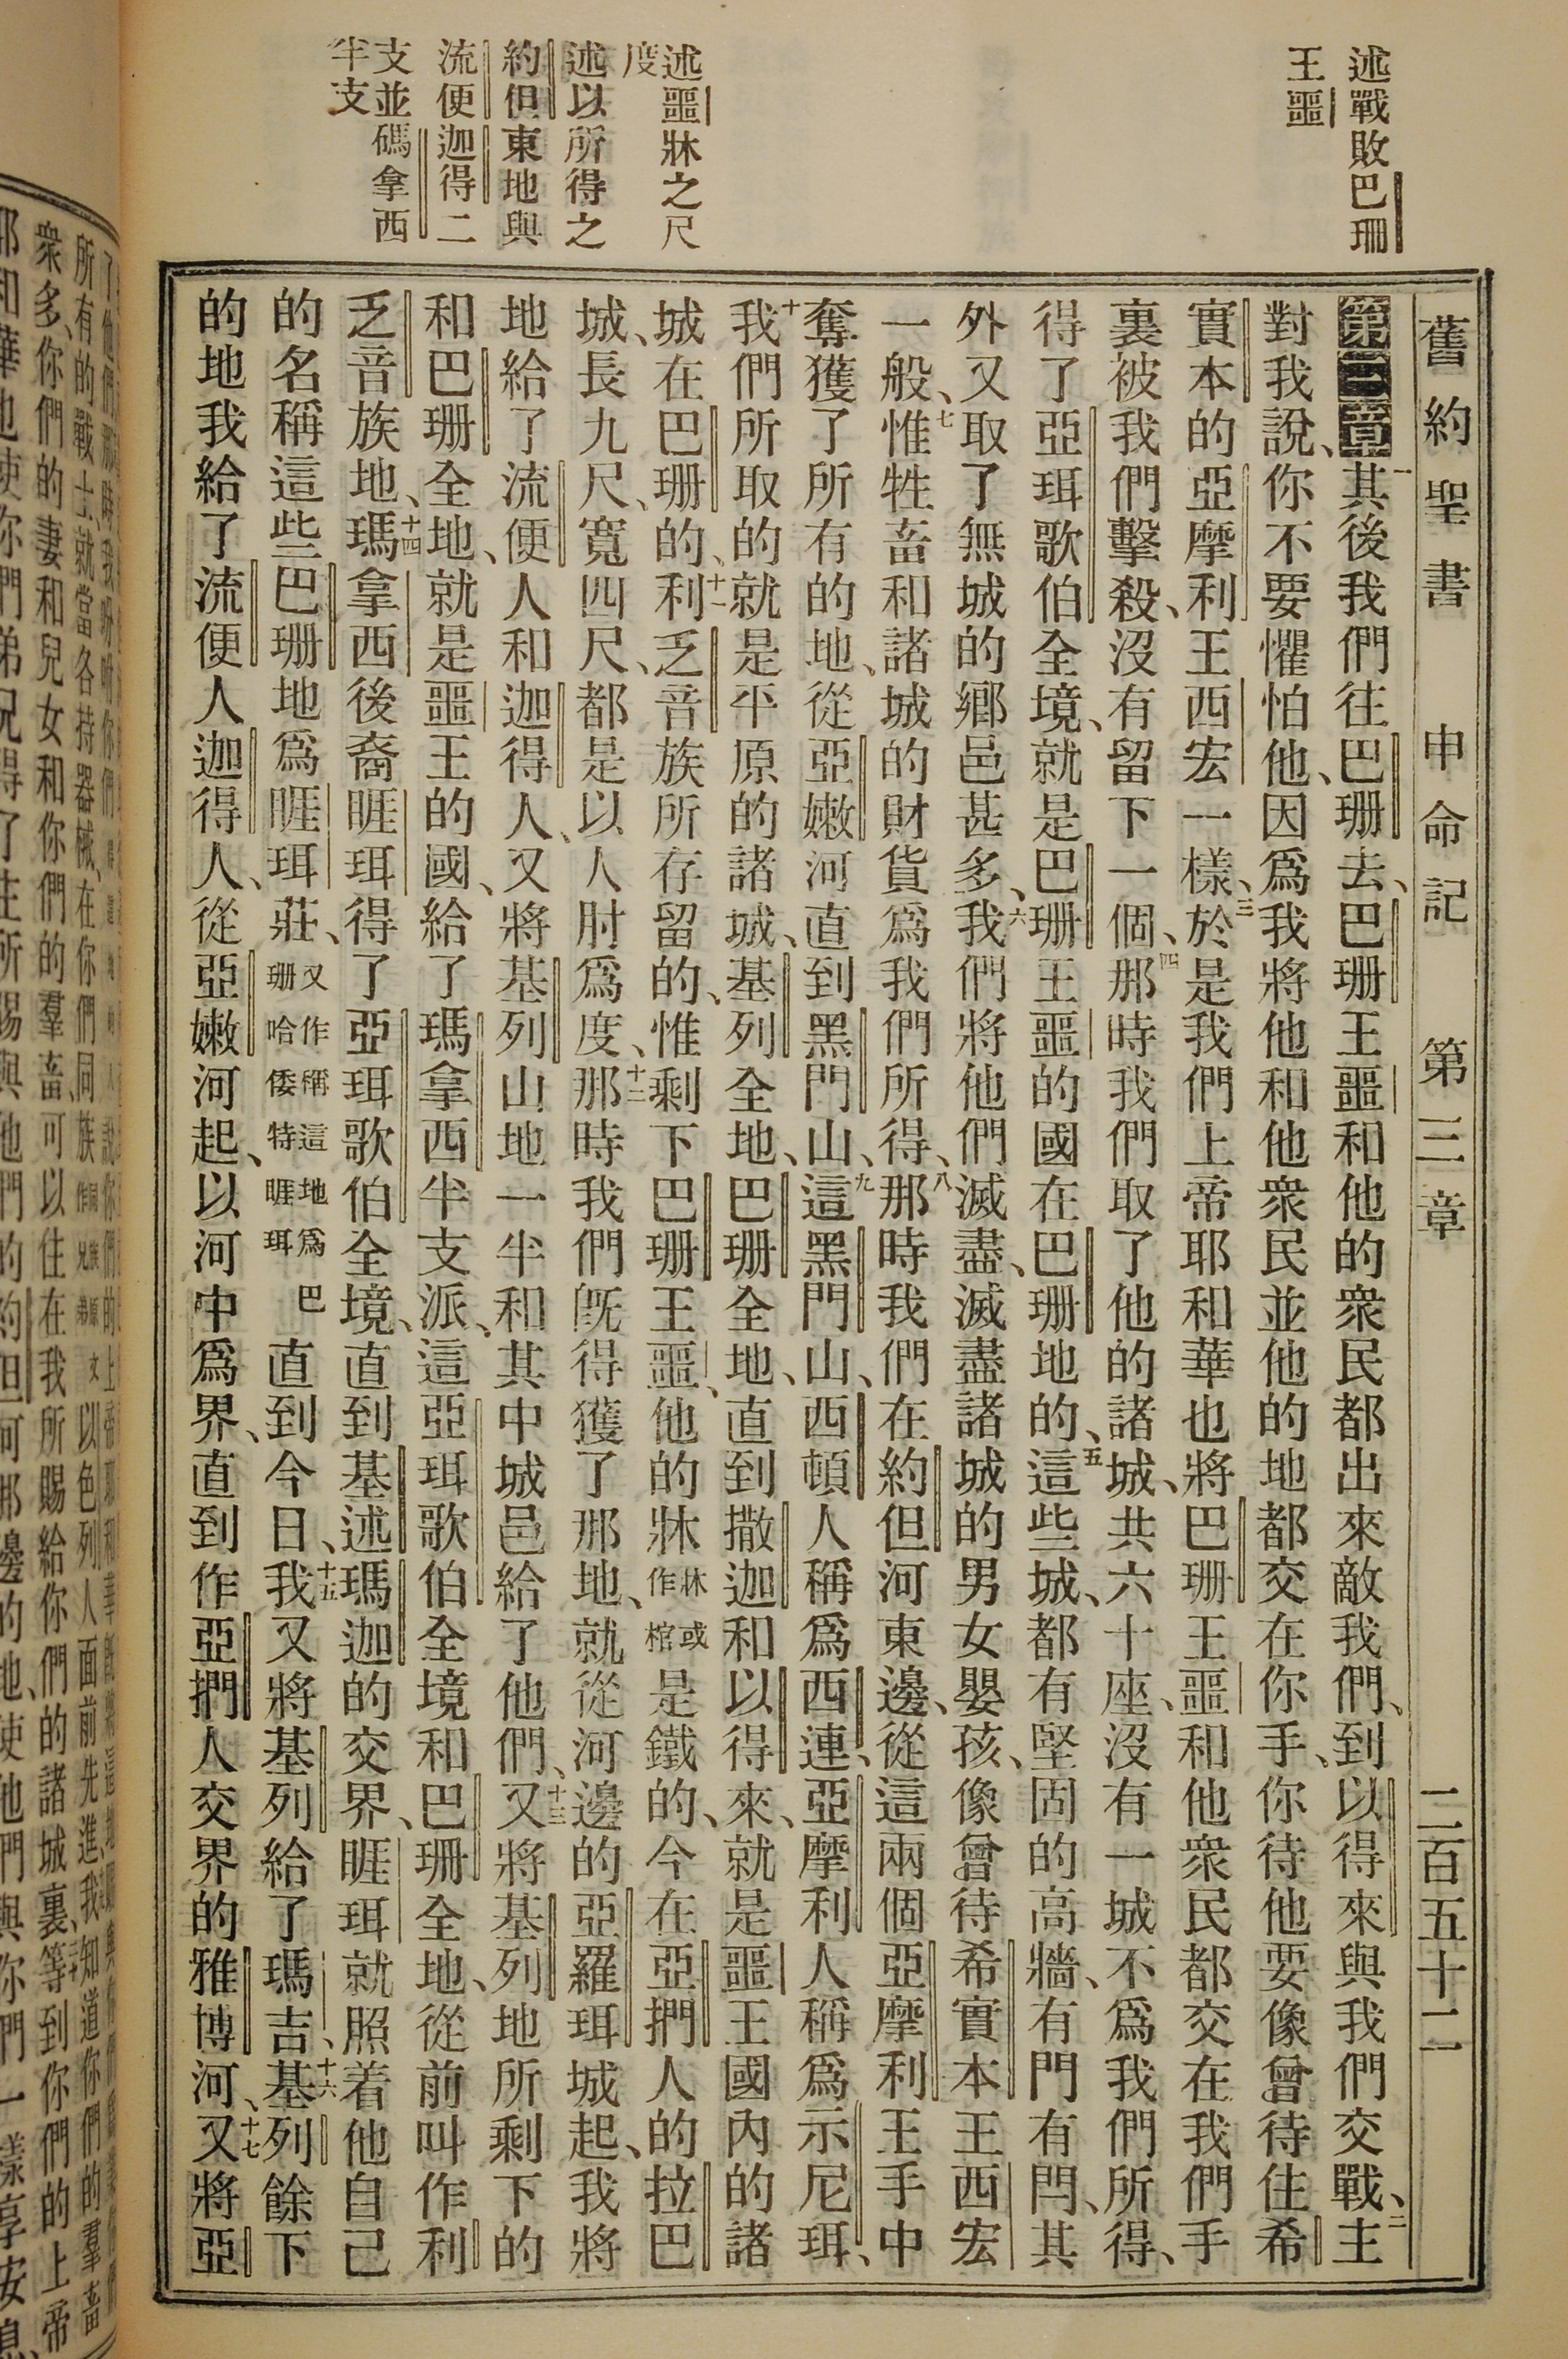 舊約聖書 申命記 第三章 二百五十二
述戰敗巴珊
王噩
述噩牀之尺
度
述以所得之
約但東地與
流便迦得二
支並碼拿西
半支
第三章一其後我們往巴珊去、巴珊王噩和他的衆民都出來敵我們、到以得來與我們交戰、二主
對我說、你不要懼怕他、因爲我將他和他衆民並他的地都交在你手、你待他要像曾待住希
實本的亞摩利王西宏一樣、三於是我們上帝耶和華也將巴珊王噩和他衆民都交在我們手
裏被我們擊殺、沒有留下一個、四那時我們取了他的諸城、共六十座、沒有一城不爲我們所得、
得了亞珥歌伯全境、就是巴珊王噩的國在巴珊地的、五這些城、都有堅固的高牆、有門有閂、其
外又取了無城的鄉邑甚多、六我們將他們滅盡、滅盡諸城的男女嬰孩、像曾待希實本王西宏
一般、七惟牲畜和諸城的財貨爲我們所得、八那時我們在約但河東邊、從這兩個亞摩利王手中
奪獲了所有的地、從亞嫩河直到黑門山、九這黑門山、西頓人稱爲西連、亞摩利人稱爲示尼珥、
十我們所取的就是平原的諸城、基列全地、巴珊全地、直到撒迦和以得來、就是噩王國內的諸
城在巴珊的、十一利乏音族所存留的、惟剩下巴珊王噩、他的牀牀或作棺是鐵的、今在亞捫人的拉巴
城、長九尺、寬四尺、都是以人肘爲度、十二那時我們旣得獲了那地、就從河邊的亞羅珥城起、我將
地給了流便人和迦得人、又將基列山地一半和其中城邑給了他們、十三又將基列地所剩下的
和巴珊全地、就是噩王的國、給了瑪拿西半支派、這亞珥歌伯全境和巴珊全地、從前叫作利
乏音族地、十四瑪拿西後裔睚珥得了亞珥歌伯全境、直到基述瑪迦的交界、睚珥就照着他自己
的名稱這些巴珊地爲睚珥莊、又作稱這地爲巴珊哈倭特睚珥直到今日、十五我又將基列給了瑪吉、十六基列餘下
的地我給了流便人迦得人、從亞嫩河起、以河中爲界、直到作亞捫人交界的雅博河、十七又將亞